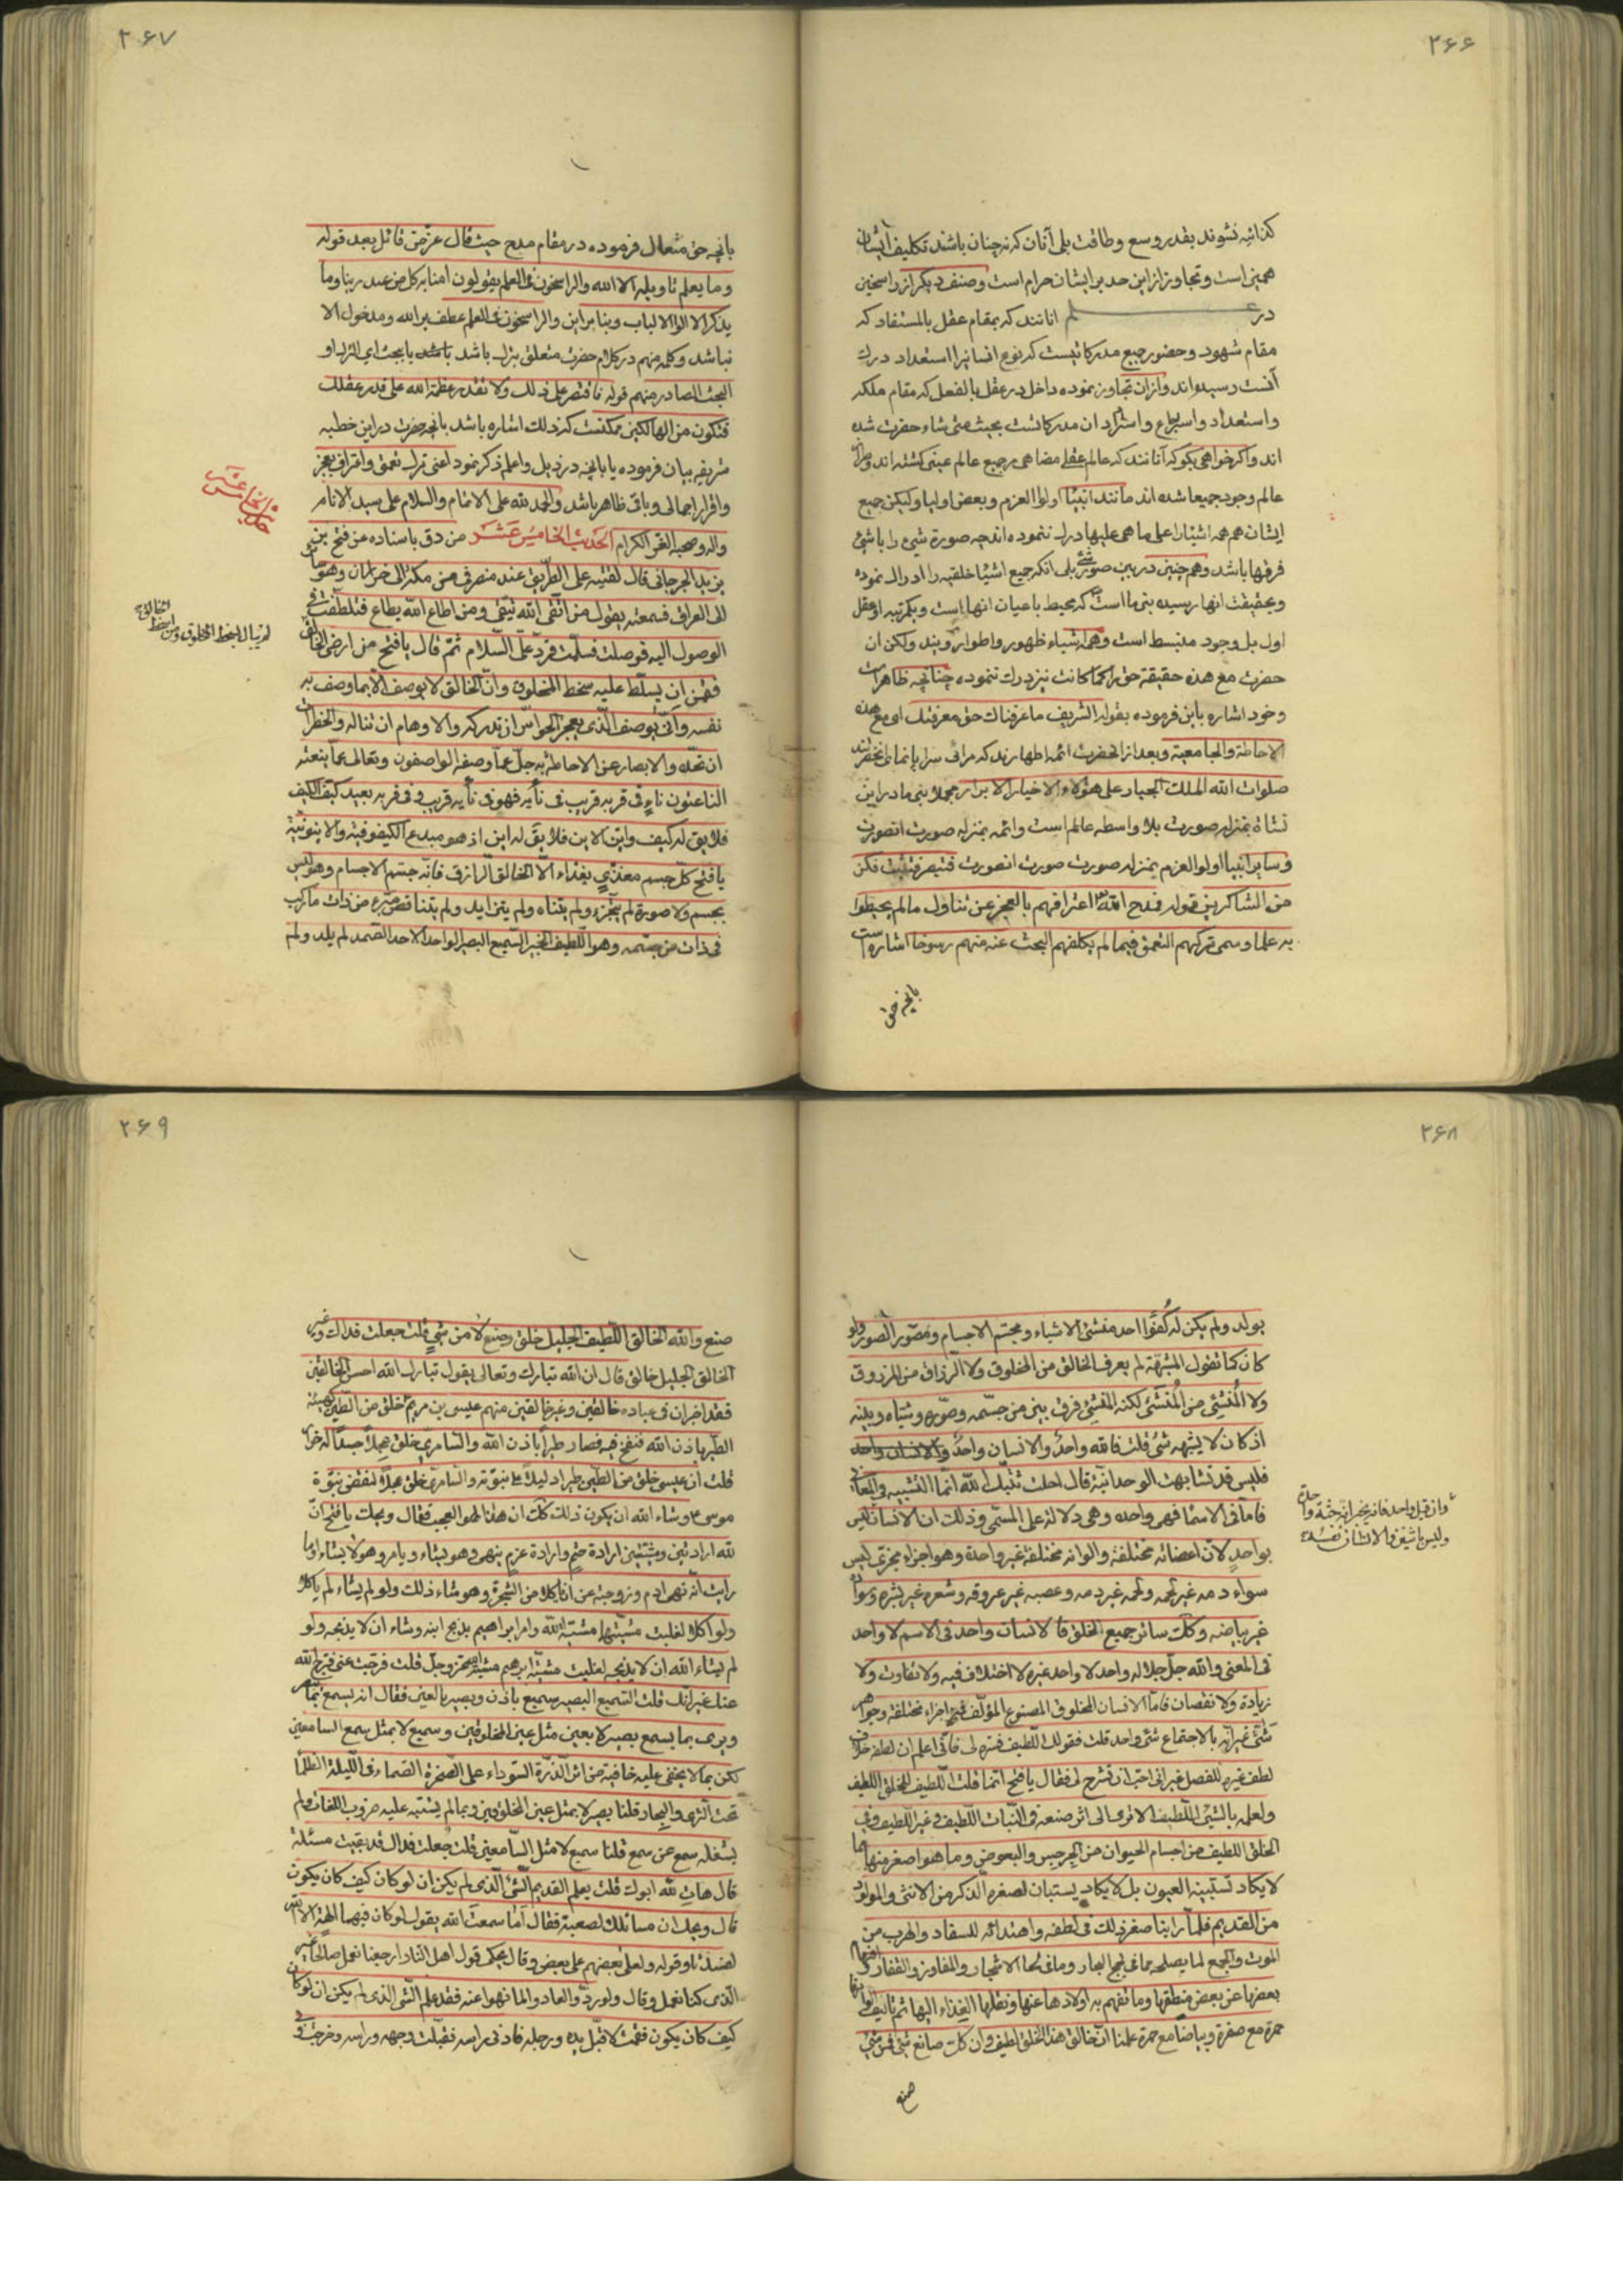 ۲۶۶
کذائیه نشوند بقدر وسع و طاقت بلی آنان که نه چنان باشند تکلیف ایشان
همین است و تجاوز از این حد بر ایشان حرام است و صنف دیگر از راسخین
در علم انانند که بمقام عقل بالمستفاد که
مقام شهود و حضور جمیع مدرکاتیست که نوع انسانیرا استعداد درک
آنست رسیده‌اند و از ان تجاوز نموده داخل در عقل بالفعل که مقام ملکه
و استعداد و استرجاع و استرداد ان مدرکاتست بحیث متی شاء حضرت شده
اند و اکر خواهی بکو که آنانند که عالم عقلی مضاهی بر جمیع عالم عینی کشته‌اند و مرآت
عالم وجود جمیعا شده‌اند مانند انبیا اولوا العزم و بعض اولیا و لیکن جمیع
ایشان هم همه اشیا را علی ما هی علیها درک ننموده‌اند چه صورة شیء را با شیء
فرقها باشد و هم چنین در بین صور شیء بلی انکه جمیع اشیا خلقیه را ادراک نموده
و بحقیقت انها رسیده نبی ما است که محیط باعیان انها است و یکمرتبه او عقل
اول بل وجود منبسط است و همه اشیاء ظهور و اطوار ویند و لکن ان
حضرت مع هذه حقیقة حق را کما کانت نیز درک ننموده چنانچه ظاهر است
و خود اشاره باین فرموده بقوله الشریف ما عرفناک حق معرفتک ای مع هذه
الاحاطة و الجامعیة و بعد از انحضرت ائمه اطهارند که مرات سراپا نمای انحضرتند
صلوات الله الملك الجبار علی هؤلاء الاخیار الابرار مجملا نبی ما در این
نشاة بمنزله صورت بلا واسطه عالم است و ائمه بمنزله صورت انصورت
و سایر انبیا اولوا العزم بمنزله صورت صورت انصورت فتبصر فتثبت فکن
من الشاکرین قوله فمدح الله اعترافهم بالعجز عن تناول ما لم یحیطوا
به علما و سمی ترکهم التعمق فیما لم یکلفهم البحث عنه منهم رسوخا اشاره است
بانچه حق
۲۶۷
بانچه حق متعال فرموده در مقام مدح حیث قال عز من قائل بعد قوله
و ما یعلم تاویله الا الله و الراسخون فی العلم یقولون امنا به کل من عند ربنا و ما
یذکر الا اولوا الالباب و بنا براین و الراسخون فی العلم عطف بر الله و مدخول الا
نباشد و کلمه منهم در کلام حضرت متعلق بترک باشد یا بحث ای الترک او
البحث الصادر منهم قوله فاقتصر علی ذلك و لا تقدر عظمة الله علی قدر عقلك
فتکون من الهالکین ممکنست که ذلك اشاره باشد بانچه حضرت در این خطبه
شریفه بیان فرموده یا بانچه در ذیل و اعلم ذکر نمود اعنی ترک تعمق و اعتراف بعجز
و اقرار اجمالی و باقی ظاهر باشد و الحمد لله علی الاتمام و السلام علی سید الانام
و اله و صحبه الغر الکرام الحدیث الخامِس عَشَر من دق باسناده عن فتح بن
یزید الجرجانی قال لقیته علی الطریق عند منصرفی من مکة الی خراسان و هو سائر
الی العراق فسمعته یقول من اتقی الله یتقی و من اطاع الله یطاع فتلطفت فی
الوصول الیه فوصلت فسلمت فرد علی السلام ثم قال یا فتح من ارضی الخالق
فقمن ان یسلط علیه سخط المخلوق و ان الخالق لا یوصف الا بما وصف به
نفسه و انی یوصف الذی یعجز الحواس ان تدرکه و الاوهام ان تناله و الخطرات
ان تحده و الابصار عن الاحاطة به جل عما وصفه الواصفون و تعالی عما ینعته
الناعتون نای فی قربه و قرب فی نایه فهو فی نایه قریب و فی قربه بعید کیف الکیف
فلا یق له کیف و این الاین فلا یق له این اذ هو مبدع الکیفوفیة و الاینونیة
یا فتح کل جسم مغذی بغذاء الا الخالق الرازق فانه جسم الاجسام و هو لیس
بجسم و لا صورة لم یتجزء و لم یتناه و لم یتزاید و لم یتناقص مبرء من ذات ما رکب
فی ذات من جسمه و هو اللطیف الخبیر السمیع البصیر الواحد الاحد الصمد لم یلد و لم
حدیث الخامس عَشَر
لم یبال بسخط المخلوق و من اسخط
الخالق
۲۶۸
یولد و لم یکن له کُفُوًا احد منشئ الاشیاء و مجسم الاجسام و مصور الصور و لو
کان کما تقول المشبهة لم یعرف الخالق من المخلوق و لا الرزاق من المرزوق
و لا المُنشِئ من المُنشَئ لکنه المنشئ فرق بین من جسمه و صوره و شیأه و بینه
اذ کان لا یشبهه شیُ قلت فالله واحدُ و الانسان واحدُ
فلیس قد تشابهت الوحدانیة قال احلت ثبتك الله انما التشبیه فی المعانی
فاما فی الاسما فهی واحده و هی دلالة علی المسمی و ذلك ان الانسان لیس
بواحدٍ لان اعضائه مختلفة و الوانه مختلفة غیر واحدة و هو اجزاء مجزی لیس
سواء دمه غیر لحمه و لحمه غیر دمه و عصبه غیر عروقه و شعره غیر بشره و سواده
غیر بیاضه و کك سائر جمیع الخلق فالانسان واحد فی الاسم لا واحد
فی المعنی و الله جل جلاله واحد لا واحد غیره لا اختلاف فیه و لا تفاوت و لا
زیادة و لا نقصان فاما الانسان المخلوق المصنوع المؤلف فمن اجزاء مختلفة و جواهر
شتی غیر انه بالاجتماع شیء واحد قلت فقولك اللطیف فسره لی فانی اعلم ان لطفه خلاف
لطف غیره للفصل غیر انی احب ان تشرح لی فقال یا فتح انما قلت اللطیف للخلق اللطیف
و لعلمه بالشیء اللطیف الا تری الی اثر صنعه فی النبات اللطیف و غیر اللطیف و فی
الخلق اللطیف من اجسام الحیوان من الجرجس و البعوض و ما هو اصغر منهما مما
لا یکاد تستبینه العیون بل لا یکاد یستبان لصغره الذکر من الانثی و المولود
من القدیم فلما راینا صغر ذلك فی لطفه و اهتدائه للسفاد و الهرب من
الموت و الجمع لما یصلحه مما فی لجج البحار و ما فی لحاء الاشجار و المفاوز و القفار و افهام
بعضها عن بعض منطقها و ما تفهم به اولادها عنها و نقلها الغذاء الیها ثم تالیف الوانها
حمرة مع صفرة و بیاضا مع حمرة علمنا ان خالق هذا الخلق لطیف و ان کل صانع شیء فمن شیء
صنع
و ان قیل واحد فانه یخبر انه جثة واحدة
و لیس باثنین فالانسان نفسه
۲۶۹
صنع و الله الخالق اللطیف الجلیل خلق و صنع لا من شیءٍ قلت جعلت فداك و غیر
الخالق الجلیل خالق قال ان الله تبارك و تعالی یقول تبارك الله احسن الخالقین
فقد اخبر ان فی عباده خالقین و غیر خالقین منهم عیسی بن مریم خلق من الطین کهیئة
الطیر باذن الله فنفخ فیه فصار طیرا باذن الله و السامری خلق عجلا جسدا له خوار
قلت ان عیسی خلق من الطین طیرا دلیلا علی نبوته و السامری خلق عجلا لنقض نبوة
موسی ع و شاء الله ان یکون ذلك کك ان هذا لهو العجب فقال ویحك یا فتح ان
لله ارادتین و مشیتین ارادة حتمٍ و ارادة عزمٍ ینهی و هو یشاء و یامر و هو لا یشاء او ما
رایت انه نهی ادم و زوجته عن ان یاکلا من الشجرة و هو شاء ذلك و لو لم یشاء لم یاکلا
و لو اکلا لغلبت مشیتهما مشیة الله و امر ابراهیم بذبح ابنه و شاء ان لا یذبحه و لو
لم یشاء الله ان لا یذبحه لغلبت مشیة ابرهیم مشیة الله عز و جل قلت فرجت عنی فرج الله
عنك غیر انك قلت السمیع البصیر سمیع باذن و بصیر بالعین فقال انه یسمع بما یبصر
و یری بما یسمع بصیر لا بعین مثل عین المخلوقین و سمیع لا بمثل سمع السامعین
لکن بما لا یخفی علیه خافیة من اثر الذرة السوداء علی الصخرة الصماء فی اللیلة الظلما
تحت الثری و البحار قلنا بصیر لا بمثل عین المخلوقین و بما لم یشتبه علیه ضروب اللغات و لم
یشغله سمع عن سمع قلنا سمیع لا مثل السامعین قلت جعلت فداك قد بقیت مسئلة
قال هات لله ابوك قلت یعلم القدیم الشیء الذی لم یکن ان لو کان کیف کان یکون
قال ویحك ان مسائلك لصعبة فقال اما سمعت الله یقول لو کان فیهما الهة الا الله
لفسدتا و قوله و لعلی بعضهم علی بعض و قال یحکی قول اهل النار ارجعنا نعمل صالحا غیر
الذی کنا نعمل و قال و لو ردوا لعادوا لما نهوا عنه فقد علم الشی الذی لم یکن ان لو کان
کیف کان یکون فقمت لاقبل یده و رجله فادنی راسه فقبلت وجهه و راسه و خرجت و